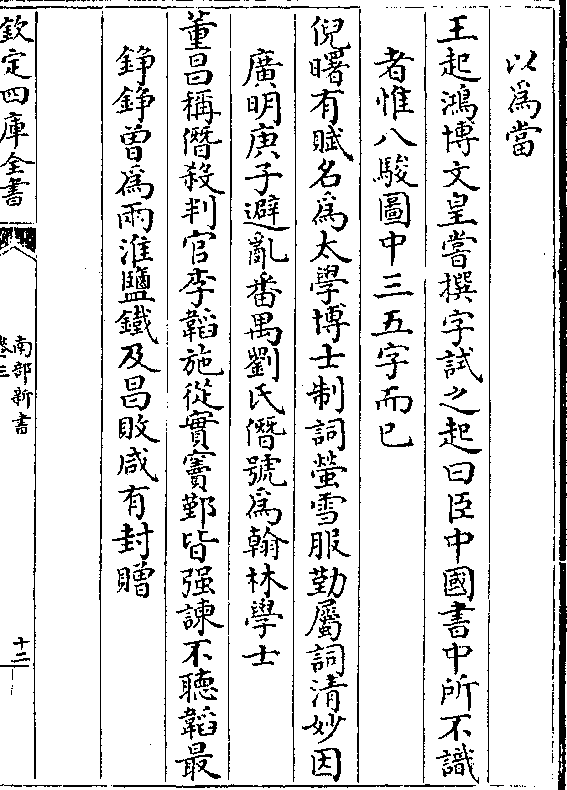 以為當
王起鴻博文皇嘗撰字試之起曰臣中國書中所不識
者惟八駿圖中三五字而已
倪曙有賦名為太學博士制詞螢雪服勤屬詞清妙因
廣明庚子避亂番禺劉氏僭號為翰林學士
董昌稱僭殺判官李韜施從實竇鄞皆强諫不聽韜最
錚錚曾為兩淮鹽鐵及昌敗咸有封贈
欽定四庫全書
南部新書
卷三
十二